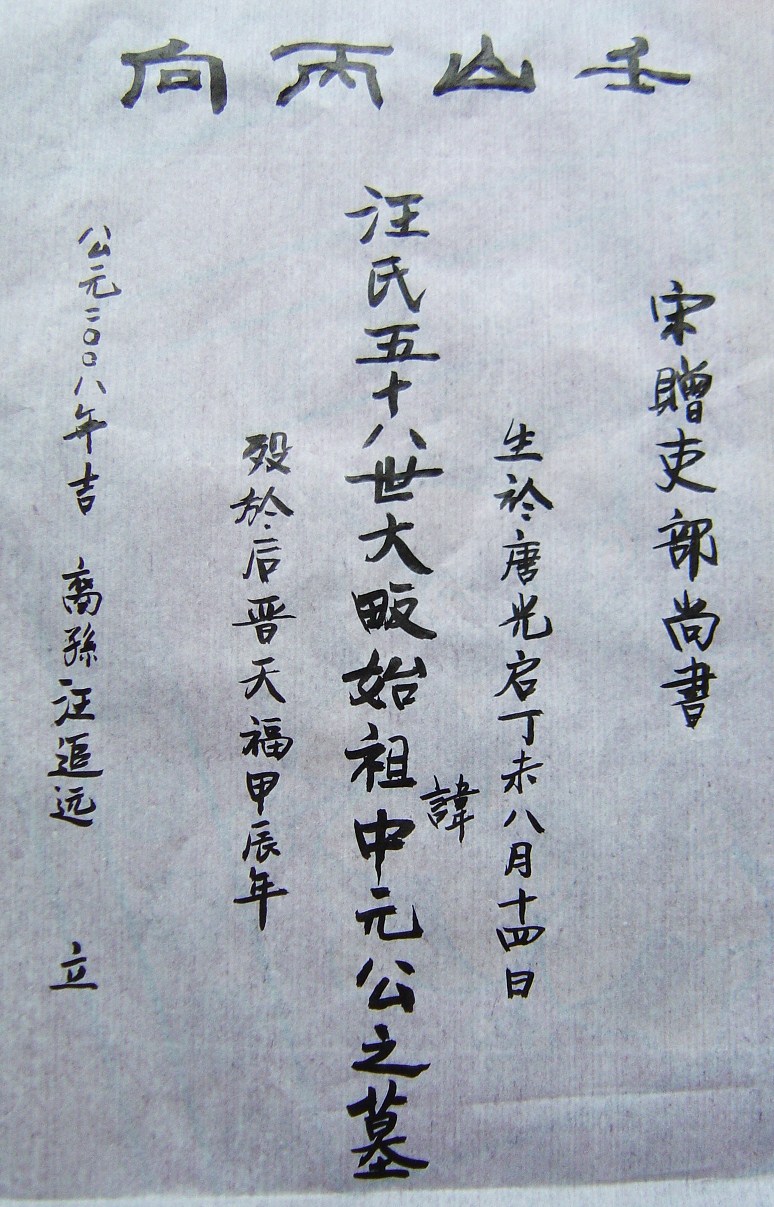 壬山丙向
宋贈吏部尚書
生於唐光启丁未八月十四日
諱
汪氏五十八世大畈始祖中元公之墓
殁於后晋天福甲辰年
公元二〇〇八年吉 裔孫汪追远 立